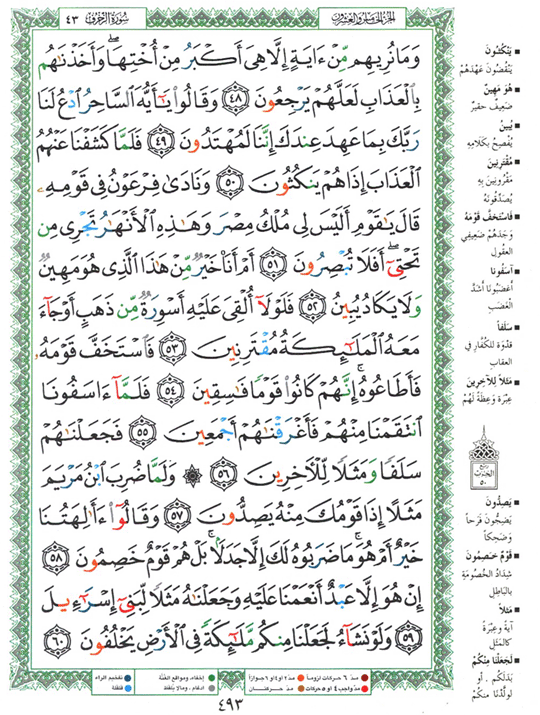 سُورَةُ الزُّخْرُفِ ٤٣
وَمَا نُرِيهِم مِّنْ ءَايَةٍ إِلَّا هِىَ أَكْبَرُ مِنْ أُخْتِهَا ۖ وَأَخَذْنَٰهُم
بِالْعَذَابِ لَعَلَّهُمْ يَرْجِعُونَ ﴿٤٨﴾ وَقَالُوا۟ يَٰٓأَيُّهَ السَّاحِرُ ادْعُ لَنَا
رَبَّكَ بِمَا عَهِدَ عِندَكَ إِنَّنَا لَمُهْتَدُونَ ﴿٤٩﴾ فَلَمَّا كَشَفْنَا عَنْهُمُ
الْعَذَابَ إِذَا هُمْ يَنكُثُونَ ﴿٥٠﴾ وَنَادَىٰ فِرْعَوْنُ فِى قَوْمِهِۦ
قَالَ يَٰقَوْمِ أَلَيْسَ لِى مُلْكُ مِصْرَ وَهَٰذِهِ الْأَنْهَٰرُ تَجْرِى مِن
تَحْتِىٓ ۖ أَفَلَا تُبْصِرُونَ ﴿٥١﴾ أَمْ أَنَا۠ خَيْرٌ مِّنْ هَٰذَا الَّذِى هُوَ مَهِينٌ
وَلَا يَكَادُ يُبِينُ ﴿٥٢﴾ فَلَوْلَآ أُلْقِىَ عَلَيْهِ أَسْوِرَةٌ مِّن ذَهَبٍ أَوْ جَآءَ
مَعَهُ الْمَلَٰٓئِكَةُ مُقْتَرِنِينَ ﴿٥٣﴾ فَاسْتَخَفَّ قَوْمَهُۥ
فَأَطَاعُوهُ ۚ إِنَّهُمْ كَانُوا۟ قَوْمًا فَٰسِقِينَ ﴿٥٤﴾ فَلَمَّآ ءَاسَفُونَا
انتَقَمْنَا مِنْهُمْ فَأَغْرَقْنَٰهُمْ أَجْمَعِينَ ﴿٥٥﴾ فَجَعَلْنَٰهُمْ
سَلَفًا وَمَثَلًا لِّلْءَاخِرِينَ ﴿٥٦﴾ ۞ وَلَمَّا ضُرِبَ ابْنُ مَرْيَمَ
مَثَلًا إِذَا قَوْمُكَ مِنْهُ يَصِدُّونَ ﴿٥٧﴾ وَقَالُوٓا۟ ءَأَٰلِهَتُنَا
خَيْرٌ أَمْ هُوَ ۚ مَا ضَرَبُوهُ لَكَ إِلَّا جَدَلًۢا ۚ بَلْ هُمْ قَوْمٌ خَصِمُونَ ﴿٥٨﴾
إِنْ هُوَ إِلَّا عَبْدٌ أَنْعَمْنَا عَلَيْهِ وَجَعَلْنَٰهُ مَثَلًا لِّبَنِىٓ إِسْرَٰٓءِيلَ
﴿٥٩﴾ وَلَوْ نَشَآءُ لَجَعَلْنَا مِنكُم مَّلَٰٓئِكَةً فِى الْأَرْضِ يَخْلُفُونَ ﴿٦٠﴾
■ يَنْكُثُونَ
يَنْقُضُونَ عَهْدَهُمْ
■ هُوَ مَهِينٌ
ضَعِيفٌ حَقِيرٌ
■ يُبِينُ
يُفْصِحُ بِكَلَامِهِ
■ مُقْتَرِنِينَ
مَقْرُونِينَ بِهِ
يُصَدِّقُونَهُ
■ فَاسْتَخَفَّ قَوْمَهُ
وَجَدَهُمْ ضَعِيفِي
العُقُولِ
■ آسَفُونَا
أَغْضَبُونَا أَشَدَّ
الْغَضَبِ
■ سَلَفاً
قُدْوَةً لِلْكُفَّارِ فِي
العِقَابِ
■ مَثَلاً لِلآخِرِينَ
عِبْرَةً وَعِظَةً لَهُمْ
■ يَصِدُّونَ
يَضِجُّونَ فَرَحاً
وَضَحِكاً
■ قَوْمٌ خَصِمُونَ
شِدَادُ الخُصُومَةِ
بِالبَاطِلِ
■ مَثَلاً
آيَةً وَعِبْرَةً
كَالمَثَلِ
■ لَجَعَلْنَا مِنْكُمْ
بَدَلَكُمْ . أَو
لَوَلَّدْنَا مِنكُمْ
مدّ ٦ حركات لزوماً مدّ ٢ أو ٤ أو ٦ جوازاً إخفاء، ومواقع الغُنَّة تفخيم الراء
مدّ واجب ٤ أو ٥ حركات مدّ حركتان إدغام ، وما لا يُلفَظ قلقلة
٤٩٣